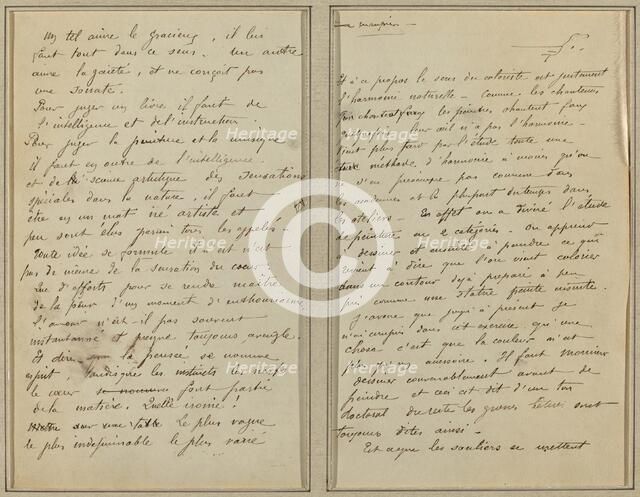 Un tel aime le gracieux, il lui
faut tout dans ce sens. Un autre
aime la gaieté, et ne conçoit pas
une sonate.
Pour juger un livre il faut de
l'intelligence et de l'instruction.
Pour juger la peinture et la musique
il faut en outre de l'intelligence
et de la science artistique des sensations
spéciales dans la nature, il faut
être en un mot né artiste et
peu sont élus parmi tous les appelés.
Toute idée se formule il n'en est
pas de même de la sensation du cœur.
Que d'efforts pour se rendre maître
de la peur d'un moment d'enthousiasme.
L'amour n'est-il pas souvent
instantané et presque toujours aveugle.
Et dire que la pensée se nomme
esprit, tandis que les instincts les nerfs
le cœur se nomme font partie
de la matière. Quelle ironie!
sur une table Le plus vague
le plus indéfinissable le plus varié
Et à ce propos le sens du coloriste est justement
l'harmonie naturelle - Comme les chanteurs
les peintres chantent faux
quelquefois leur œil n'a pas l'harmonie -
Vient plus tard par l'étude toute une
méthode d'harmonie à moins qu'on
ne s'en préoccupe pas comme dans
les académies et la plupart du temps dans
les ateliers - En effet on a divisé l'étude
de peinture en 2 catégories. On apprend
à dessiner et ensuite à peindre ce qui
revient à dire que l'on vient colorier
dans un contour déjà préparé à peu
près comme une statue peinte ensuite.
J'avoue que jusqu'à présent je
n'ai compris dans cet exercice qu'une
chose c'est que la couleur n'est
plus qu'un accessoire. Il faut Monsieur
dessiner convenablement avant de
peindre et ceci est dit d'un ton
doctoral du reste les grosses bêtises sont
toujours dites ainsi.
Est ce que les souliers se mettent
Heritage
Heritage
Heritage
Heritage
Heritage
Heritage
Heritage
Heritage
©